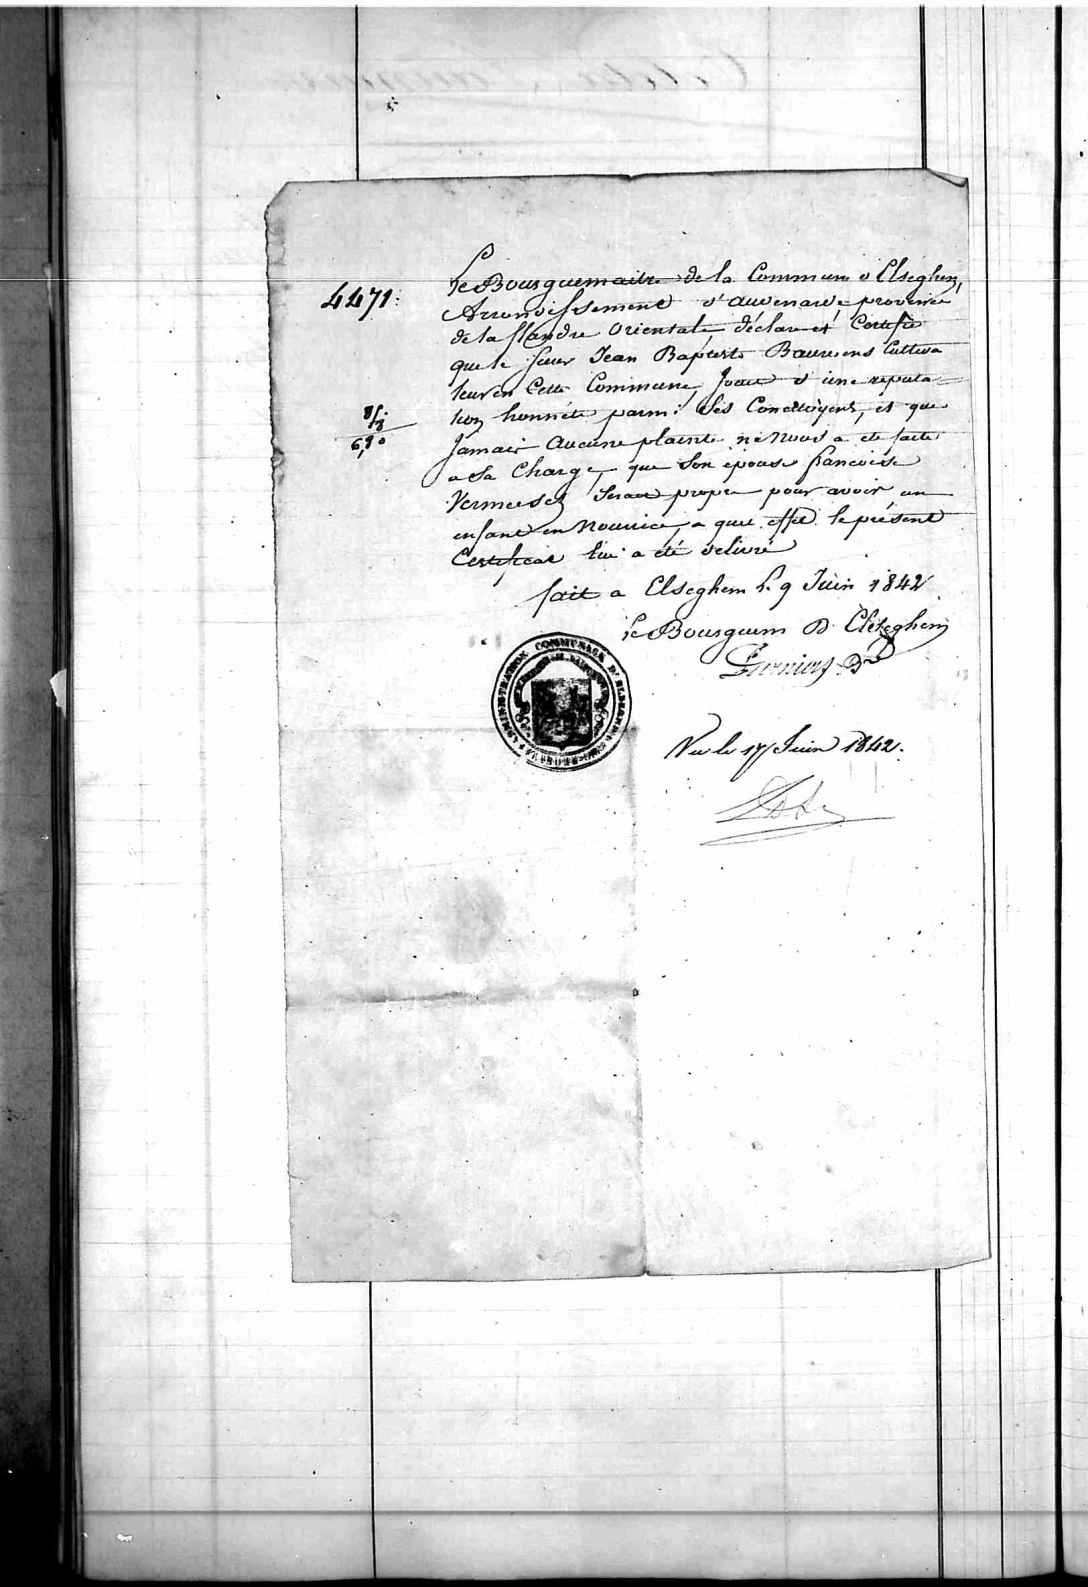 4471:
Le Bourguemaitre de la Commune d'Elseghem,
Arrondissement d'audenarde province
de la flandre Orientale, déclare et Certifie
que le sieur Jean Baptiste Cultiva
teur en Cette Commune, Joue d'une reputa-
tion honnéte parmi Ses Concitoÿens, et que
Jamais Aucune plainte ne nous a eté faite
a Sa Charge, que Son épouse francoise
Vermeesch Serait propre pour avoir un
enfant en Nourrice, a quel effet le présent
Certificat lui a été delivré
fait a Elseghem le 9 Juin 1842
le Bourguem D'Elseghem
ADMINISTRATION COMMUNALE D'ELSEGHEM
Vu le 17 Juin 1842.